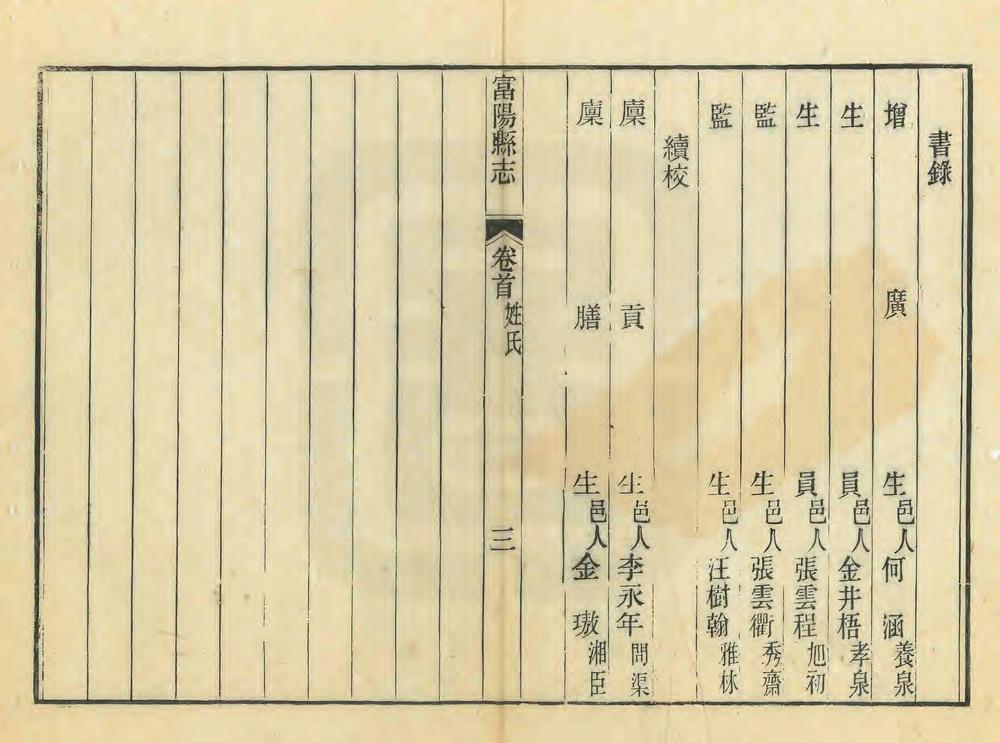 書錄
增廣生邑人何涵養泉
生員邑人金井梧孝泉
生員邑人張雲程旭初
監生邑人張雲衢秀齋
監生邑人汪樹翰雅林
續校
廩貢生邑人李永年問渠
廩膳生邑人金璈湘臣
富陽縣志 卷首 姓氏 三